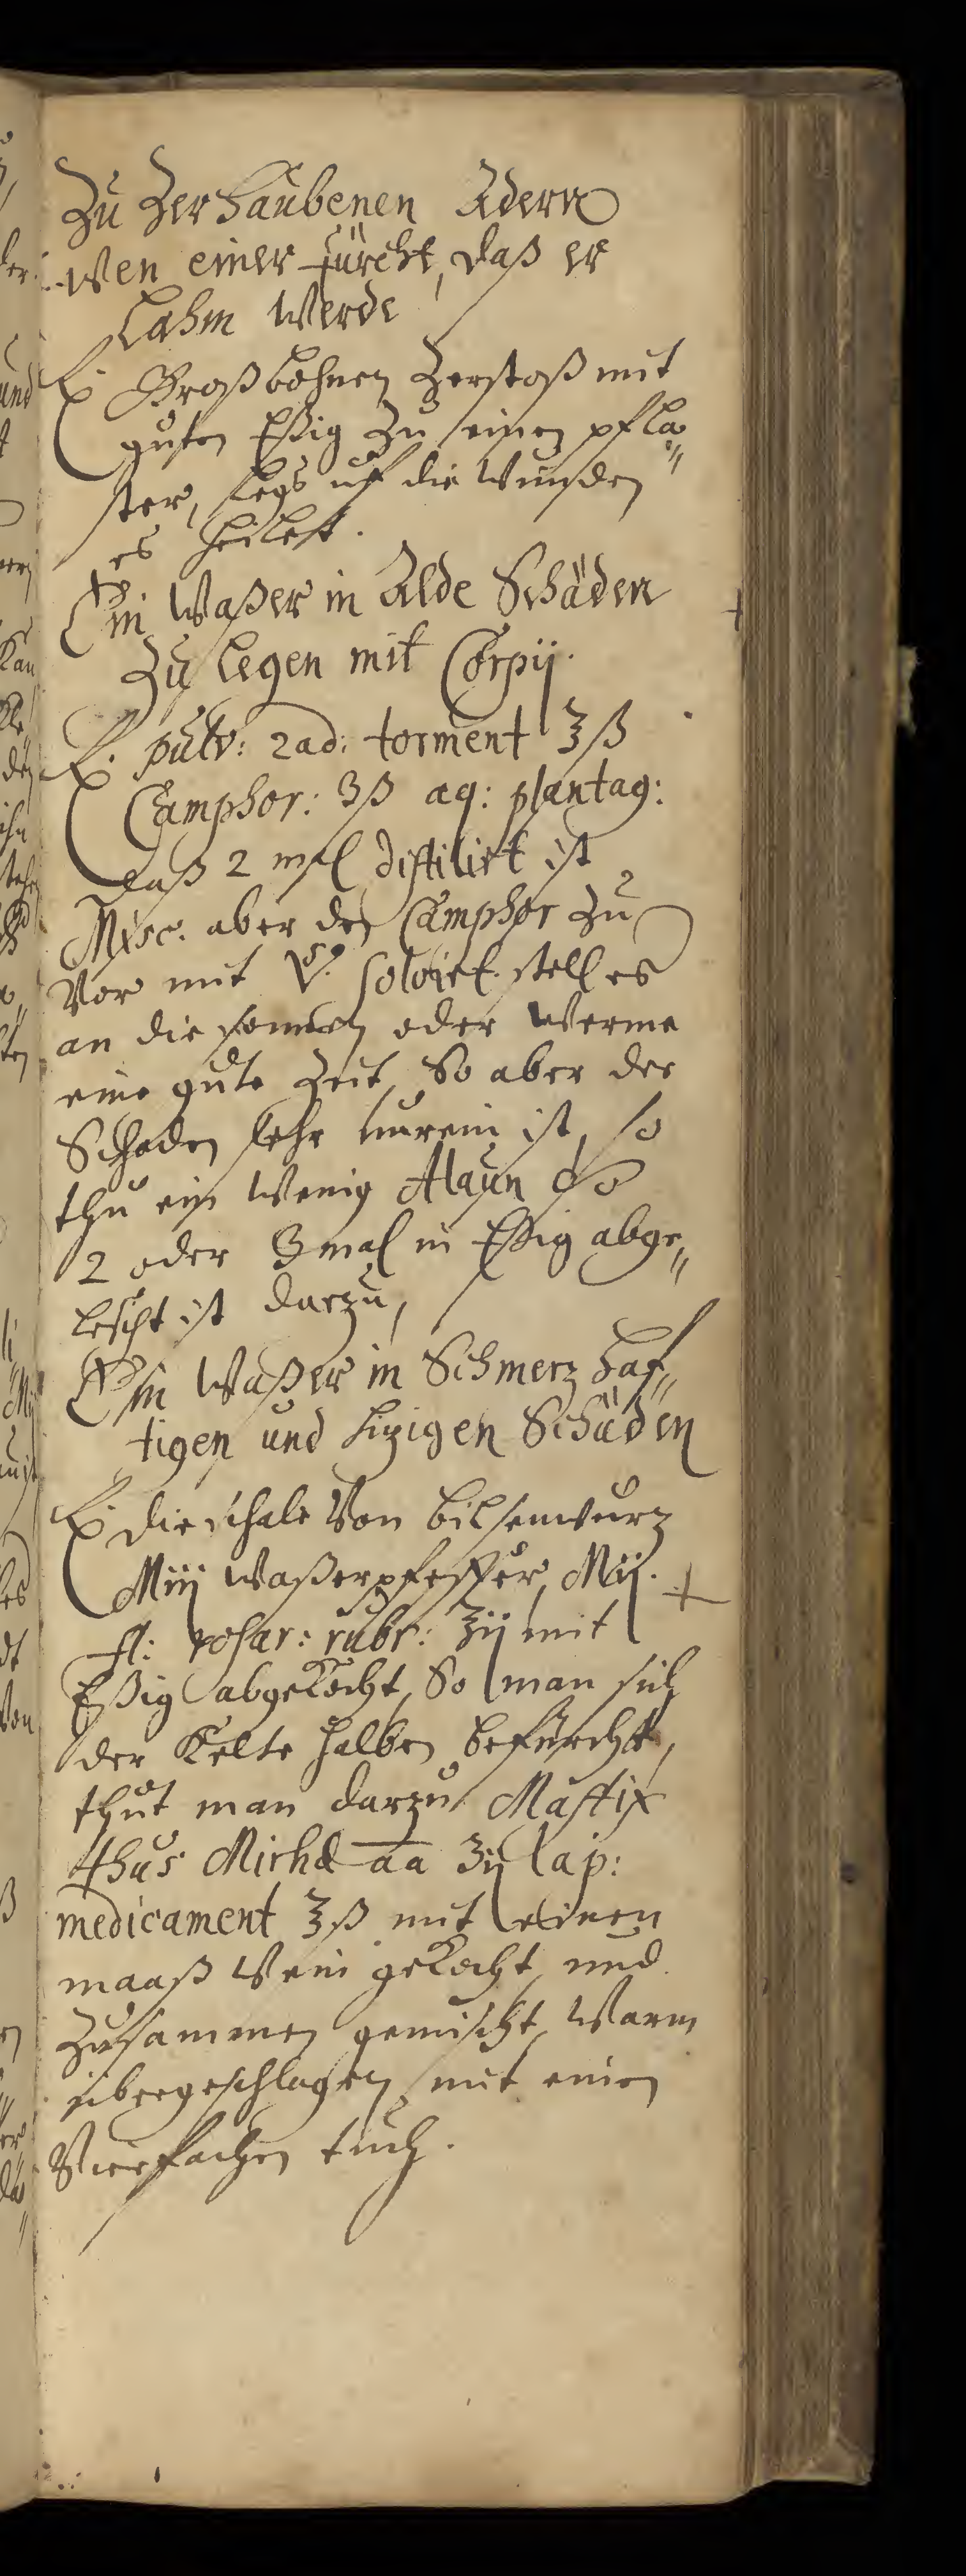 Zu Zerhaubenen Adern
wen einer fürcht, daß er
Lahm werde
Rx. Großbohnen Zerstoß mit
guten Eßig Zu einen pfla„
ster, legs uf die wunden
es heilest.
Ein Waßer in Alde Schäden
Zu legen mit Corpij.
Rx. pulv: rad: torment ℥ß
Camphor: ʒß aq: plantag:
daß 2 mal distilirt ist
Misc. aber den Camphor zu
vor mit solvirt stell es
an die sonnen oder werme
eine gute Zeit, So aber der
Schaden sehr unrein ist, so
thu ein wenig Alaun so
2 oder 3 mal in Eßig abge„
lescht ist darzu,
Ein Waßer in Schmerzhaf„
tigen und hizigen Schäden
Rx. die schale von bilsenwurz
Miij waßerpfeffer, Mij.
fl: rosar: rubr: ʒij mit
Eßig abgekocht, So man sich
der Kelte halben befürcht,
thut man darzu Mastix
thus Mirhae aa ʒij lap:
medicament ℥ß mit einen
maaß wein gekocht, und
Zusammen gemischt, warm
übergeschlagen mit einen
Vierfachen tuch.